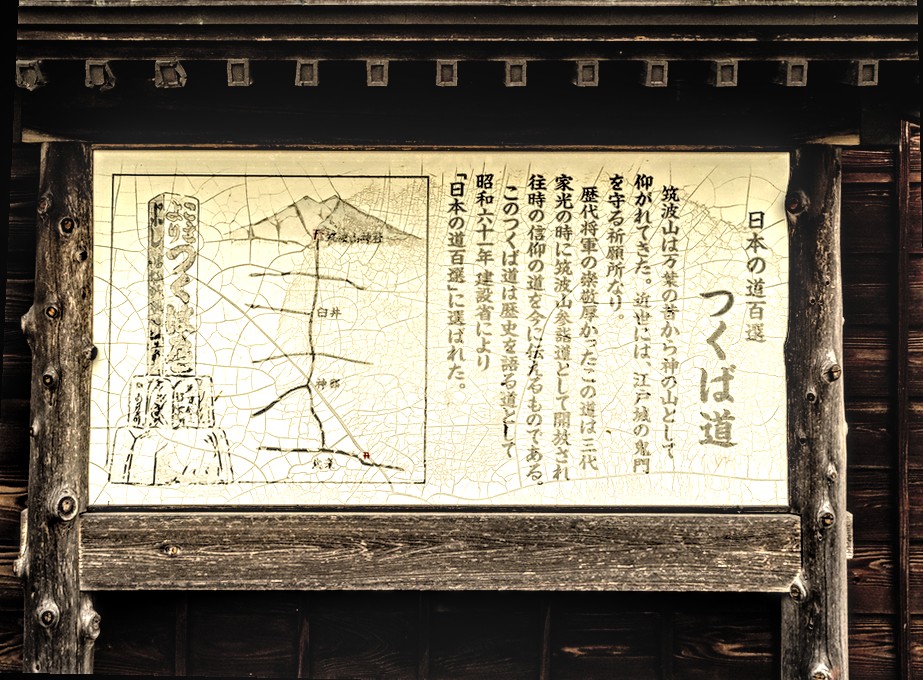 日本の道百選
つくば道
筑波山は万葉の昔から神の山として
仰がれてきた。近世には、江戸城の鬼門
を守る祈願所なり。
歴代将軍の崇敬厚かったこの道は三代
家光の時に筑波山参詣道として開放され
往時の信仰の道を今に伝えるものである。
このつくば道は歴史を語る道として
昭和六十一年 建設省により
「日本の道百選」に選ばれた。
筑波山神社
臼井
神郡
北条
つくば道